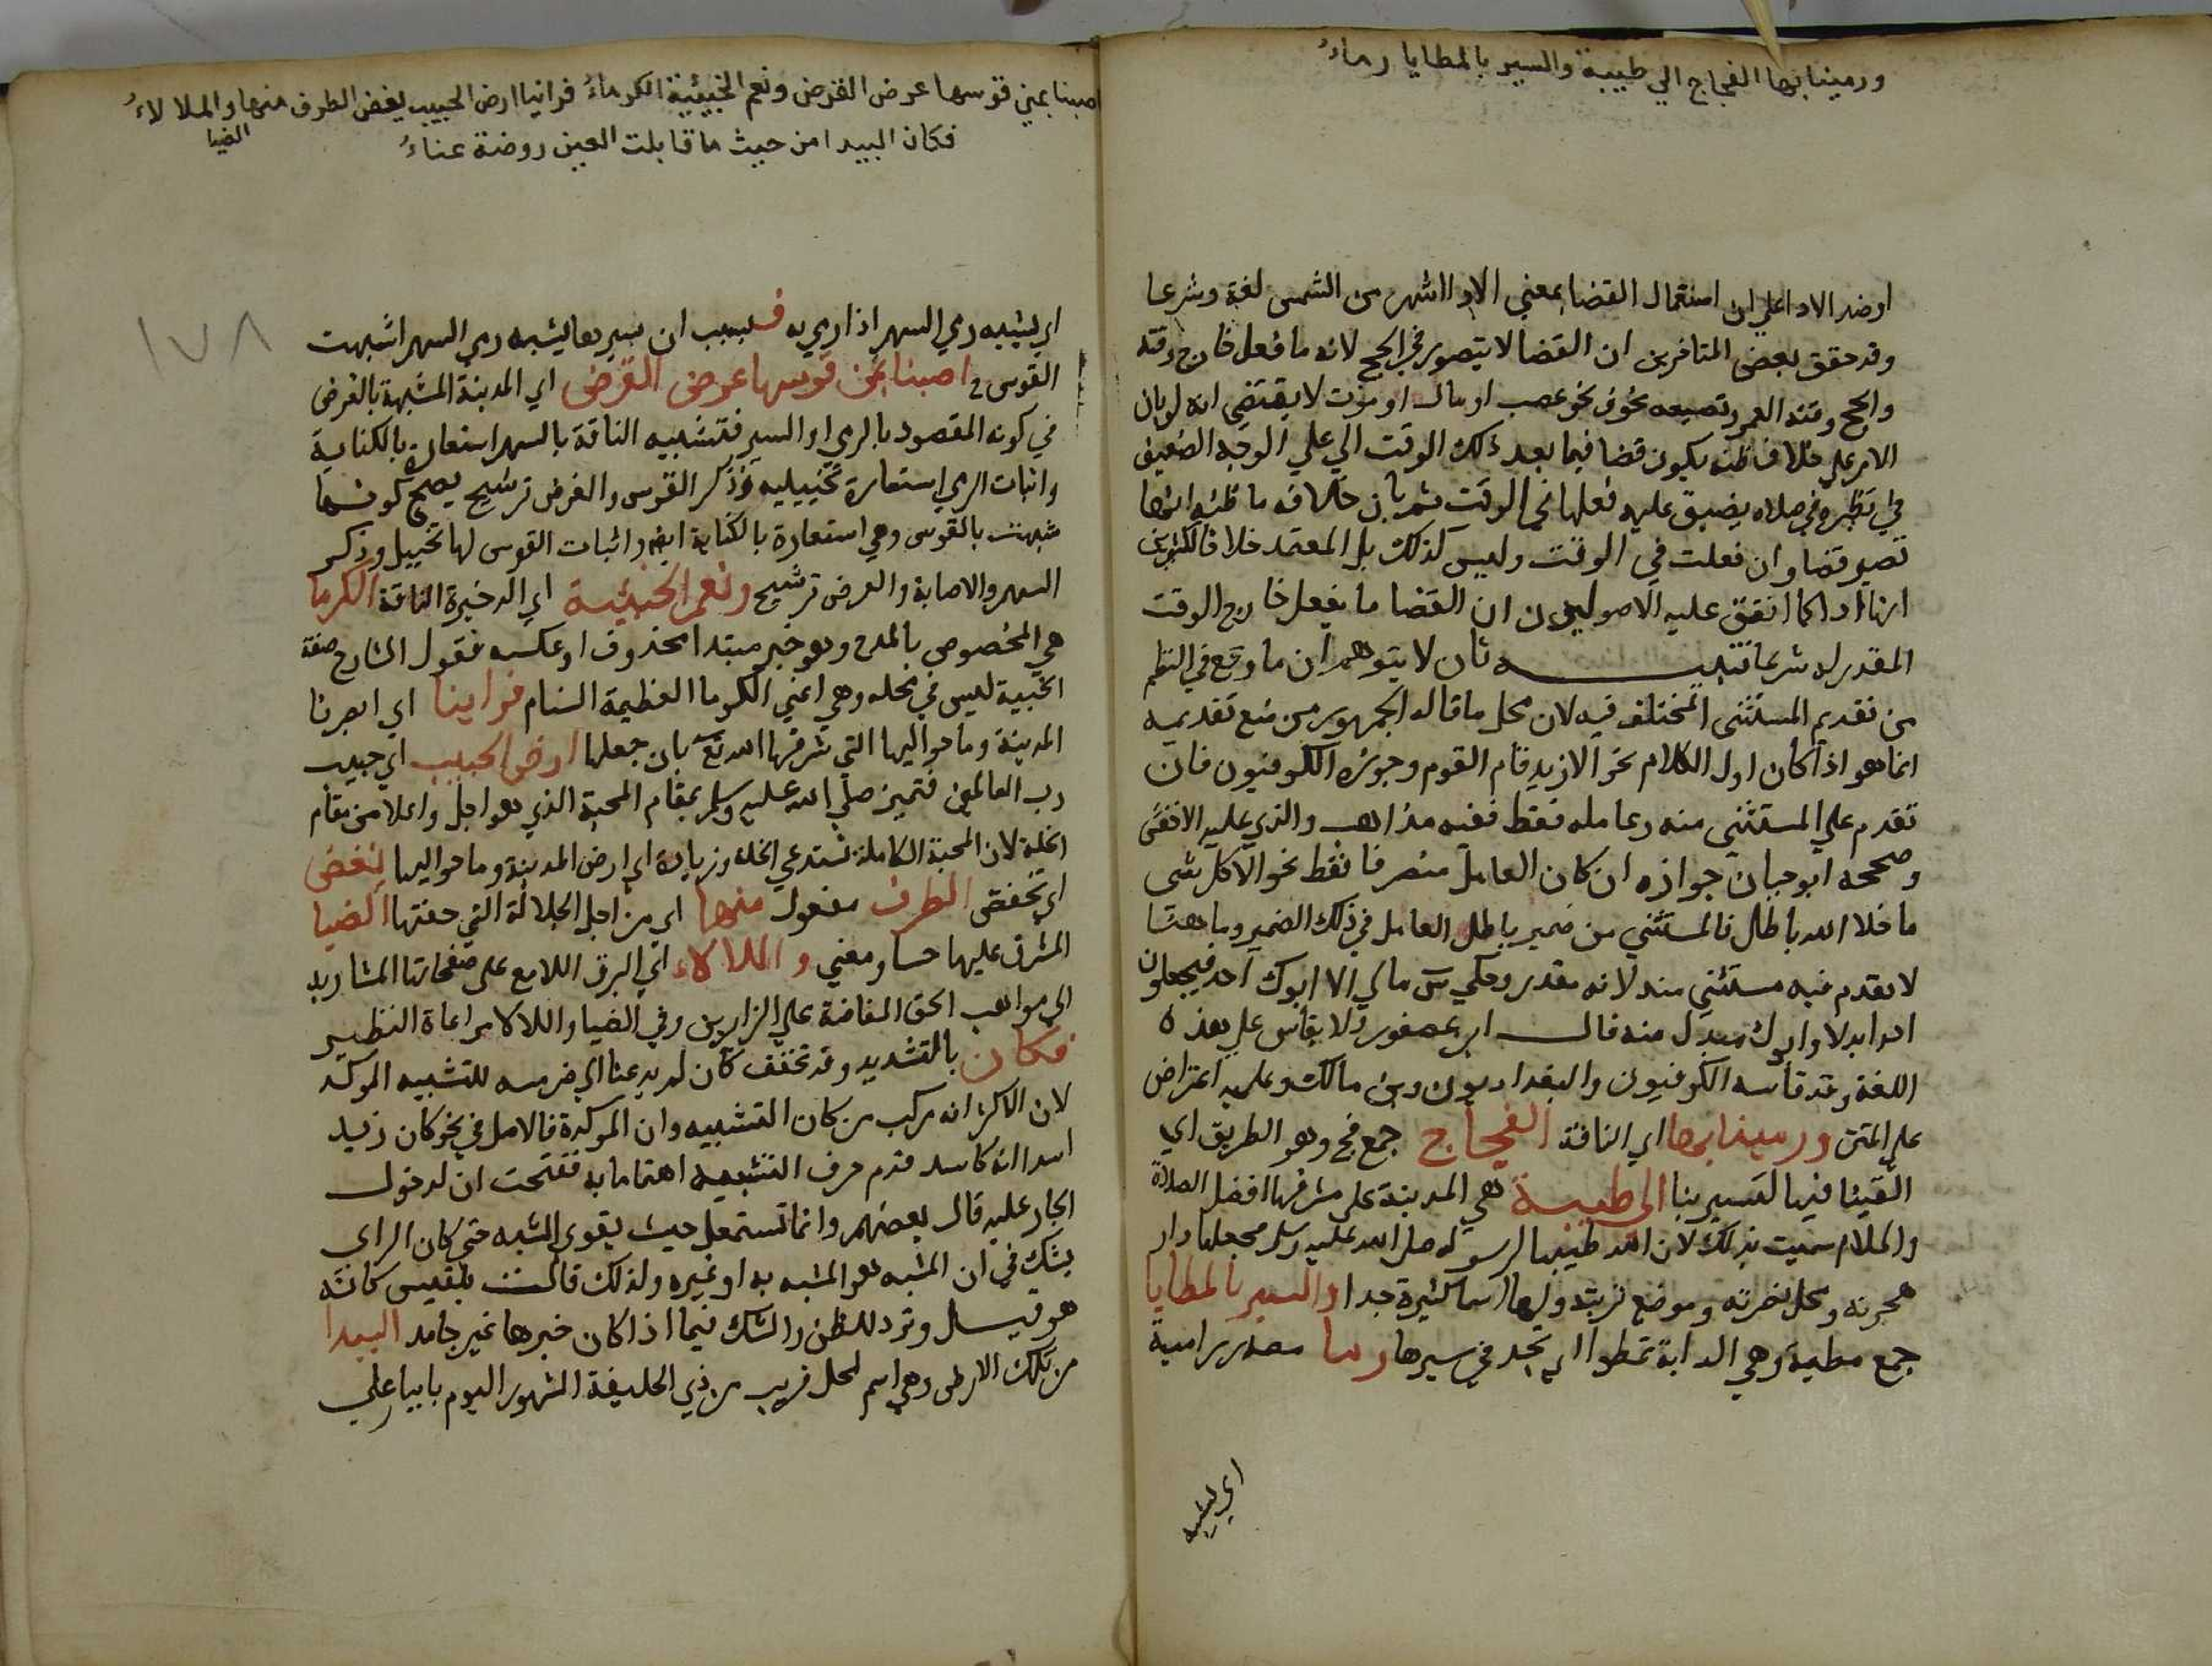 ورمينا بها الفجاج الي طيبة والسير بالمطايا رماءُ
اوضد الادا علي ان استعمال القضا بمعني الادا اشهر من الشمس لغة وشرعا
وقد حقق بعض المتاخرين ان القضا لا يتصور في الحج لانه ما فعل خارج وقته
والحج وقته العمر وتضييقه بخوف نحو عصب او مال او موت لا يقتضي انه لو بان
الامر علي خلاف ظنه يكون قضا فيما بعد ذلك الوقت الي علي الوجه الضعيف
في نظيره في صلاه يضيق عليه فعلها في الوقت ثم بان خلاف ما ظنه انها
تصير قضا وان فعلت في الوقت وليس كذلك بل المعتمد خلافا لكثيرين
انها ادا كما اتفق عليه الاصوليون ان القضا ما يفعل خارج الوقت
المقدر له شرعا تنبيه ثان لا يتوهم ان ما وقع في النظم
من تقديم المستثني المختلف فيه لان محل ما قاله الجمهور من منع تقديمه
انما هو اذا كان اول الكلام نحو الا زيد قام القوم وجوزه الكوفيون فان
تقدم علي المستثني منه وعامله فقط ففيه مذاهب والذي عليه الاخفش
وصححه ابو حيان جوازه ان كان العامل متصرفا فقط نحو الا كل شي
ما خلا الله باطل فالمستثني من ضمير باطل العامل في ذلك الضمير وما هنا
لا تقدم فيه مستثني منه لانه مقدر وحكي س ما لي الا ابوك احد فيجعلون
احدا بدلا وابوك مبدل منه قال ابن عصفور ولا يقاس علي هذه
اللغة وقد قاسه الكوفيون والبغداديون وابن مالك وعليه اعتراض
علي المتن ورمينا بها اي الناقة الفجاج جمع فج وهو الطريق اي
القينا فيها لتسير بنا الي طيبة هي المدينة علي مشرفها افضل الصلاة
والسلام سميت بذلك لان الله طيبها لرسوله صلي الله عليه وسلم بجعلها دار
هجرته ومحل نصرته وموضع تربته ولها اسما كثيرة جدا والسير بالمطايا
جمع مطية وهي الدابة تمطوا اي تجد في سيرها رما مصدر رامية
اي يشبه
اصبنا بمن قوسها عرض القرض ونعم الخبيئية الكوماءُ فراينا ارض الحبيب يغض الطرف منها والملا لاءُ
الضيا
فكان البيدا من حيث ما قابلت العين روضة عناءُ
١٧٨
اي يشبه رمي السهم اذا رمي به فـ بسبب ان سيرها يشبه رمي السهم اشبهت
القوس و اصبنا بمن قوسها عرض القرض اي المدينة المشبهة بالغرض
في كونه المقصود بالرمي او السير فتشبيه الناقة بالسهم استعارة بالكناية
واثبات الرمي استعارة تخييليه وذكر القوس والغرض ترشيح يصح كونها
شبهت بالقوس وهي استعارة بالكناية ايضا واثبات القوس لها تخييل وذكر
السهم والاصابة والغرض ترشيح ونعم الخبيئية اي الدخيرة الناقة الكوما
هي المخصوص بالمدح وهو خبر مبتدا محذوف او عكسه فقول الشارح صفة
الخبية ليس في محله وهي اعني الكوما العظيمة السنام فراينا اي ابصرنا
المدينة وما حواليها التي شرفها الله تع بان جعلها ارض الحبيب اي حبيب
رب العالمين فتميز صلي الله عليه وسلم بمقام المحبة الذي هو اجل واعلا من مقام
الخلة لان المحبة الكاملة تستدعي الخلة وزيادة اي ارض المدينة وما حواليها يغض
اي تخفض الطرف مفعول منها اي من اجل الجلالة التي حفتها الضيا
المشرق عليها حسا ومعني و اللالاء اي البرق اللامع علي صفحاتها المشار به
الي مواهب الحق المفاضة علي الزايرين وفي الضيا واللالا مراعاة النظير
فكان بالتشديد وقد تخفف كان لم يدعنا الي ضر مسه للتشبيه الموكد
لان الاكثر انه مركب من كان التشبيه وان الموكدة فالاصل في نحو كان زيد
اسد ان كاسد قدم حرف التشبيه اهتماما به ففتحت ان لدخول
الجار عليه قال بعضهم وانما تستعمل حيث يقوي الشبه حتي كان الراي
يشك في ان المشبه هو المشبه به او غيره ولذلك قالت بلقيس كانه
هو قيل وترد للظن والشك فيما اذا كان خبرها غير جامد البيدا
من تلك الارض وهي اسم لمحل قريب من ذي الحليفة المشهور اليوم بابيار علي